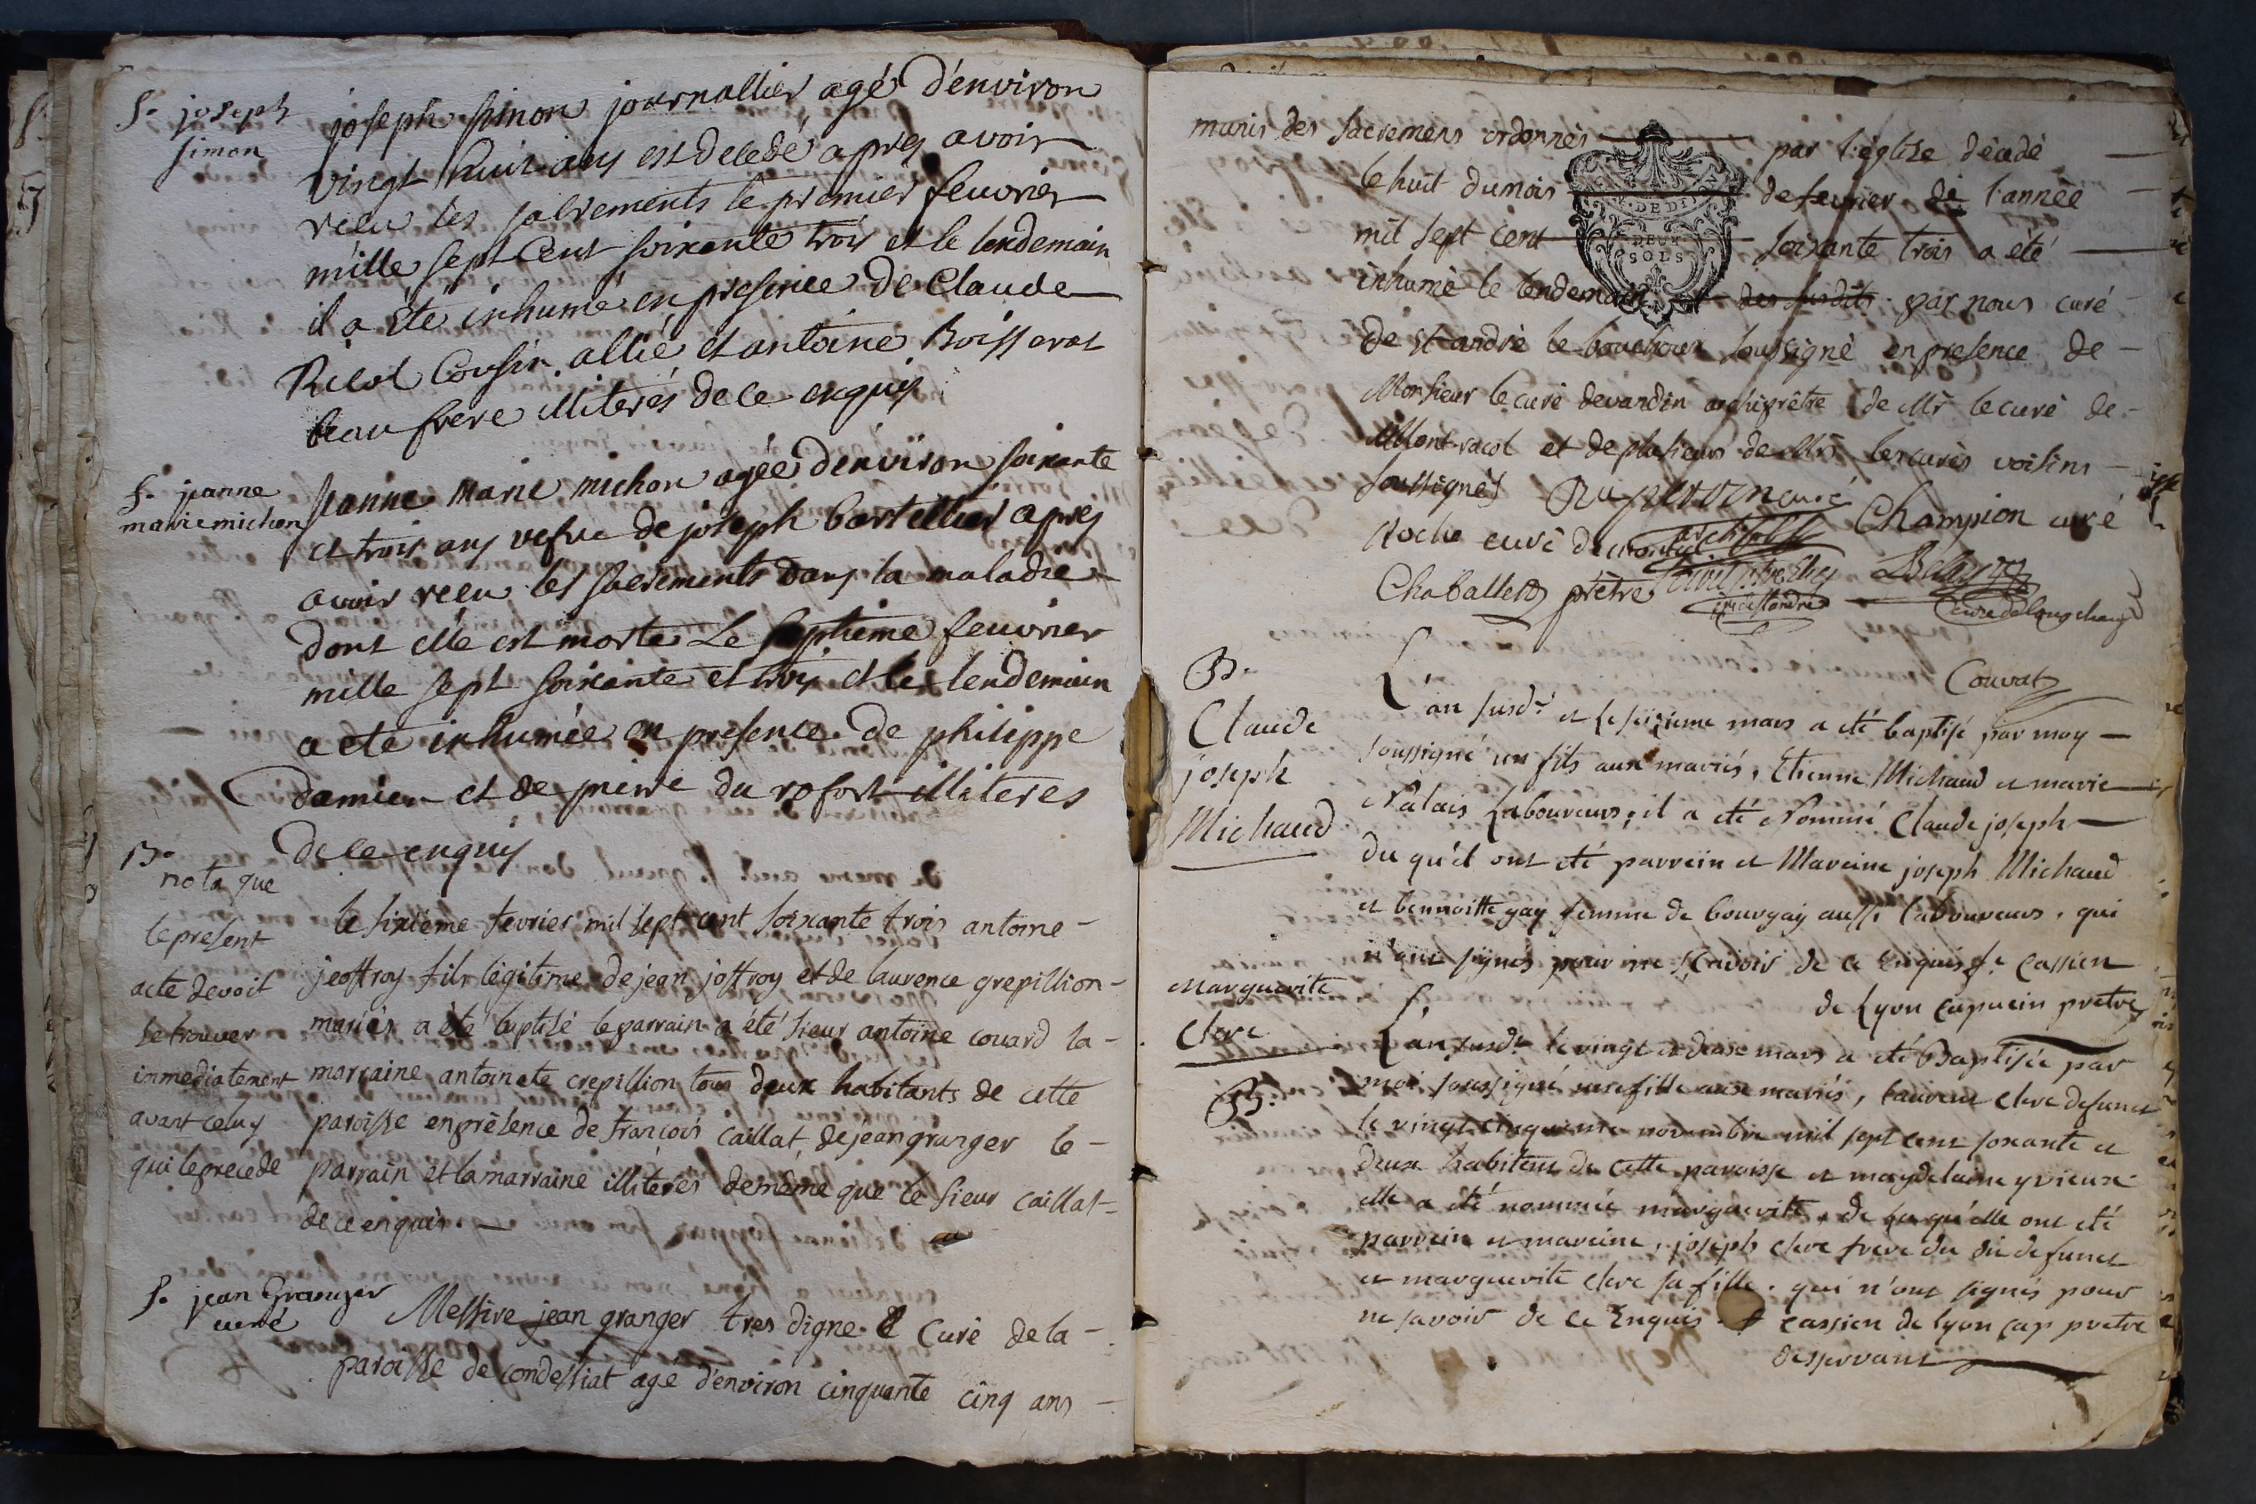 S. joseph
simon
joseph simon journallier agé d'environ
vingt huit ans est decedé apres avoir
recu les sacrements le premier feuvrier
mille sept Cent soixante trois et le lendemain
il a été inhumé en presence de Claude
Ricol Cousin allié et antoine Boisserat
beau frere illiterés de ce enquis
S. jeanne
marie michon
jeanne marie michon agée d'environ soixante
et trois ans vefve de joseph bartellier apres
avoir recu les sacrements dans la maladie
dont elle est morte Le septieme feuvrier
mille sept soixante et trois et le lendemain
a eté inhumée en presence de philippe
Damien et de pierre du rofort illiteres
de ce enquis
B.
nota que
le present
acte devoit
se trouver
immediatement
avant celuy
qui le precede
le sixième fevrier mil sept cent soixante trois antoine
jeoffroy fils legitime de jean joffroy et de laurence grepillion
mariés a été baptisé le parrain a été sieur antoine couard la
marraine antoinete crepillion tous deux habitants de cette
paroisse en présence de francois caillat, de jean granger le
parrain et la marraine illiterés de même que le sieur caillat
de ce enquis
S. jean Granger
curé
Messire jean granger tres digne Curé de la
paroisse de condessiat agé d'environ cinquante cinq ans
munis des sacremens ordonnés par l'église décédé
le huit du mois de fevrier de l'année
mil sept cent soixante trois a été
DEUX
SOLS
inhumé le lendemain des susdits par nous curé
de St andré le bouchoux soussigné en presence de
Monsieur le curé devandin archiprêtre de Mr le curé de
Mont-racol et de plusieurs de Mrs les curés voisins
soussignés Duperron curé
Roche curé de montracol Champion curé
Chaballet prêtre
curé de longchamp
Couvat
B.
Claude
joseph
Michaud
L'an susd. et le seizieme mars a eté baptisé par moy
soussigné un fils aux mariés, Etienne Michaud et marie
Nâlais Laboureurs, il a eté Nommé Claude joseph
du qu'el ont eté parrein et Mareine joseph Michaud
et bennoitte gay femme de bourgay aussi laboureurs, qui
n'ont signés pour ne scavoir de ce Enquis f. Cassien
de Lyon capucin pretre
Marguerite
Clere
B.
L'an susd. le vingt et deux mars a eté Baptisée par
moi soussigné une fille aux mariés, laurent clere defunct
le vingt cinquieme novembre mil sept cent soxante et
deux habitent de cette paroisse et magdelaine yvieux
elle a eté nommée marguerite, de la qu'elle ont eté
parrein et mareine, joseph clere frere du dit defunct
et marguerite clere sa fille. qui n'ont signés pour
ne savoir de ce Enquis. f cassien de lyon cap pretre
desservant